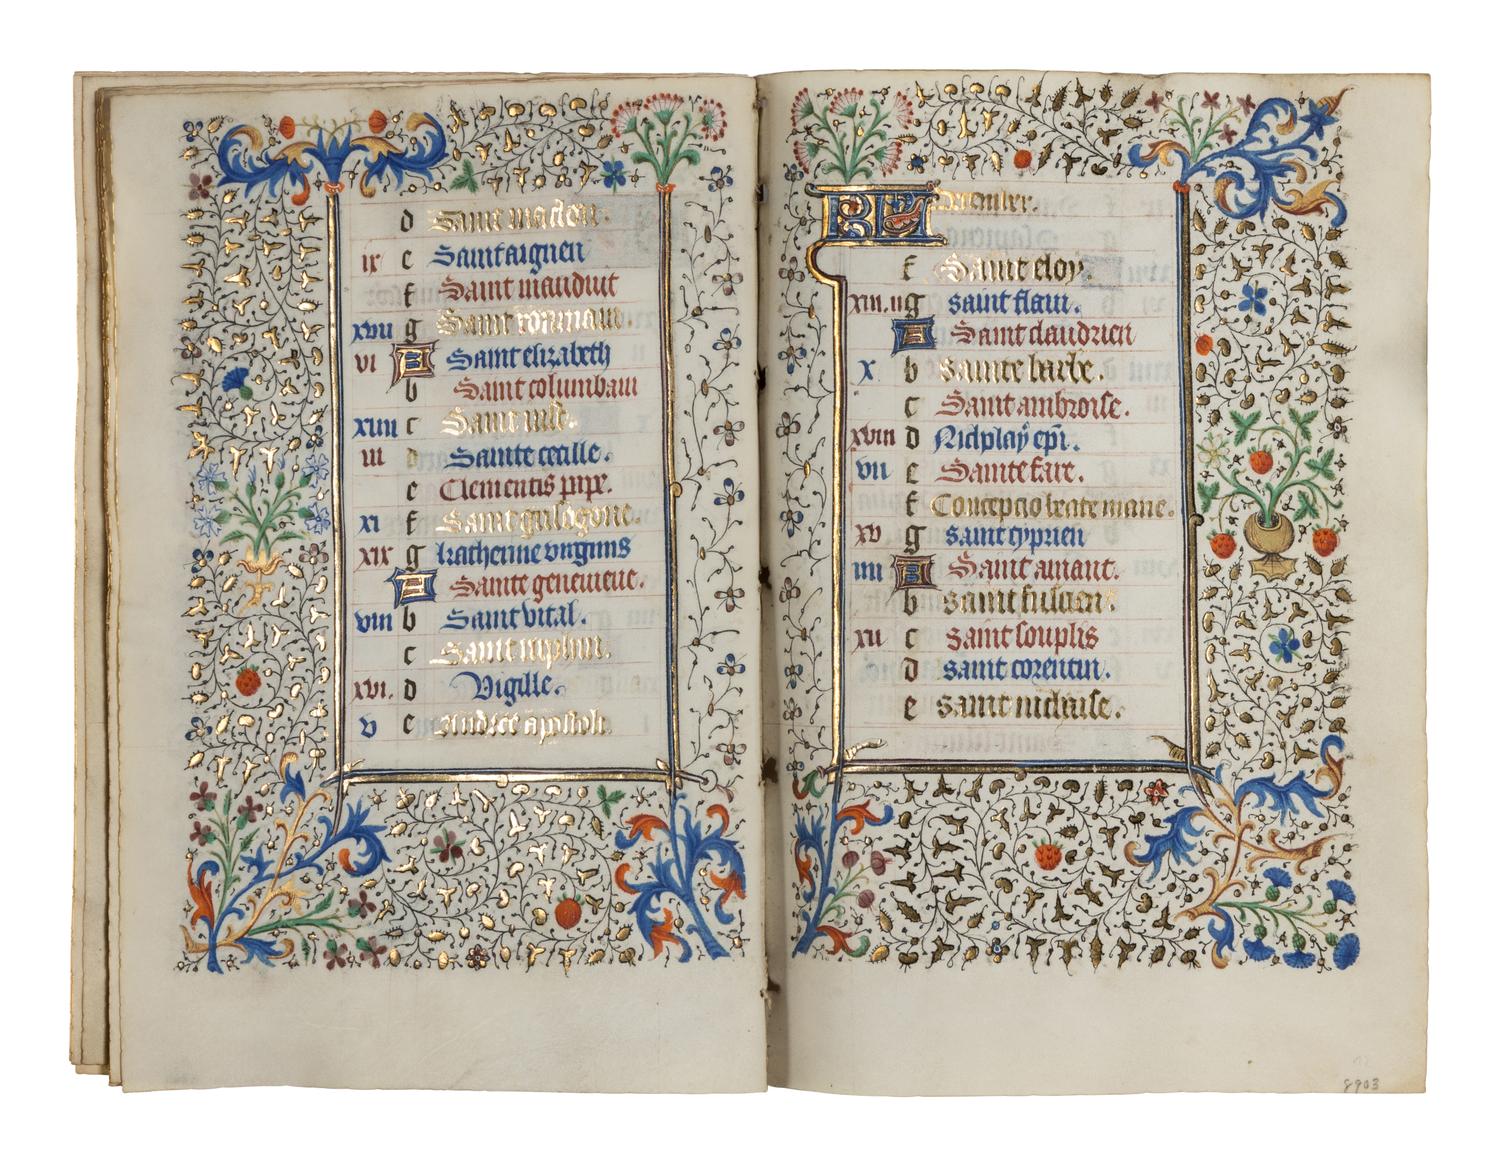 d Saint maclou.
ix e Saint aignen
f Saint mauduit
xvii g Saint rommain.
vi A Saint elizabeth
b Saint columbain
xiiii c Saint
iii d Sainte cecille.
e Clementis pape.
xi f Saint grisogone.
xix g katherine virginis
A Sainte genevieve.
viii b Saint vital.
c Saint
xvi. d Vigille.
v e Andree apostoli.
KL Decembre.
f Saint eloy
xiii. ii g saint flaui.
A Saint claudrien
x b Sainte barbe.
c Saint ambroise.
xviii d Nicolay epi.
vii e Sainte fare.
f Concepcio beate marie.
xv g saint cyprien
iiii A Saint amant.
b saint fulcien.
xii c saint souplis
d saint corentin.
e saint nichaise.
8903